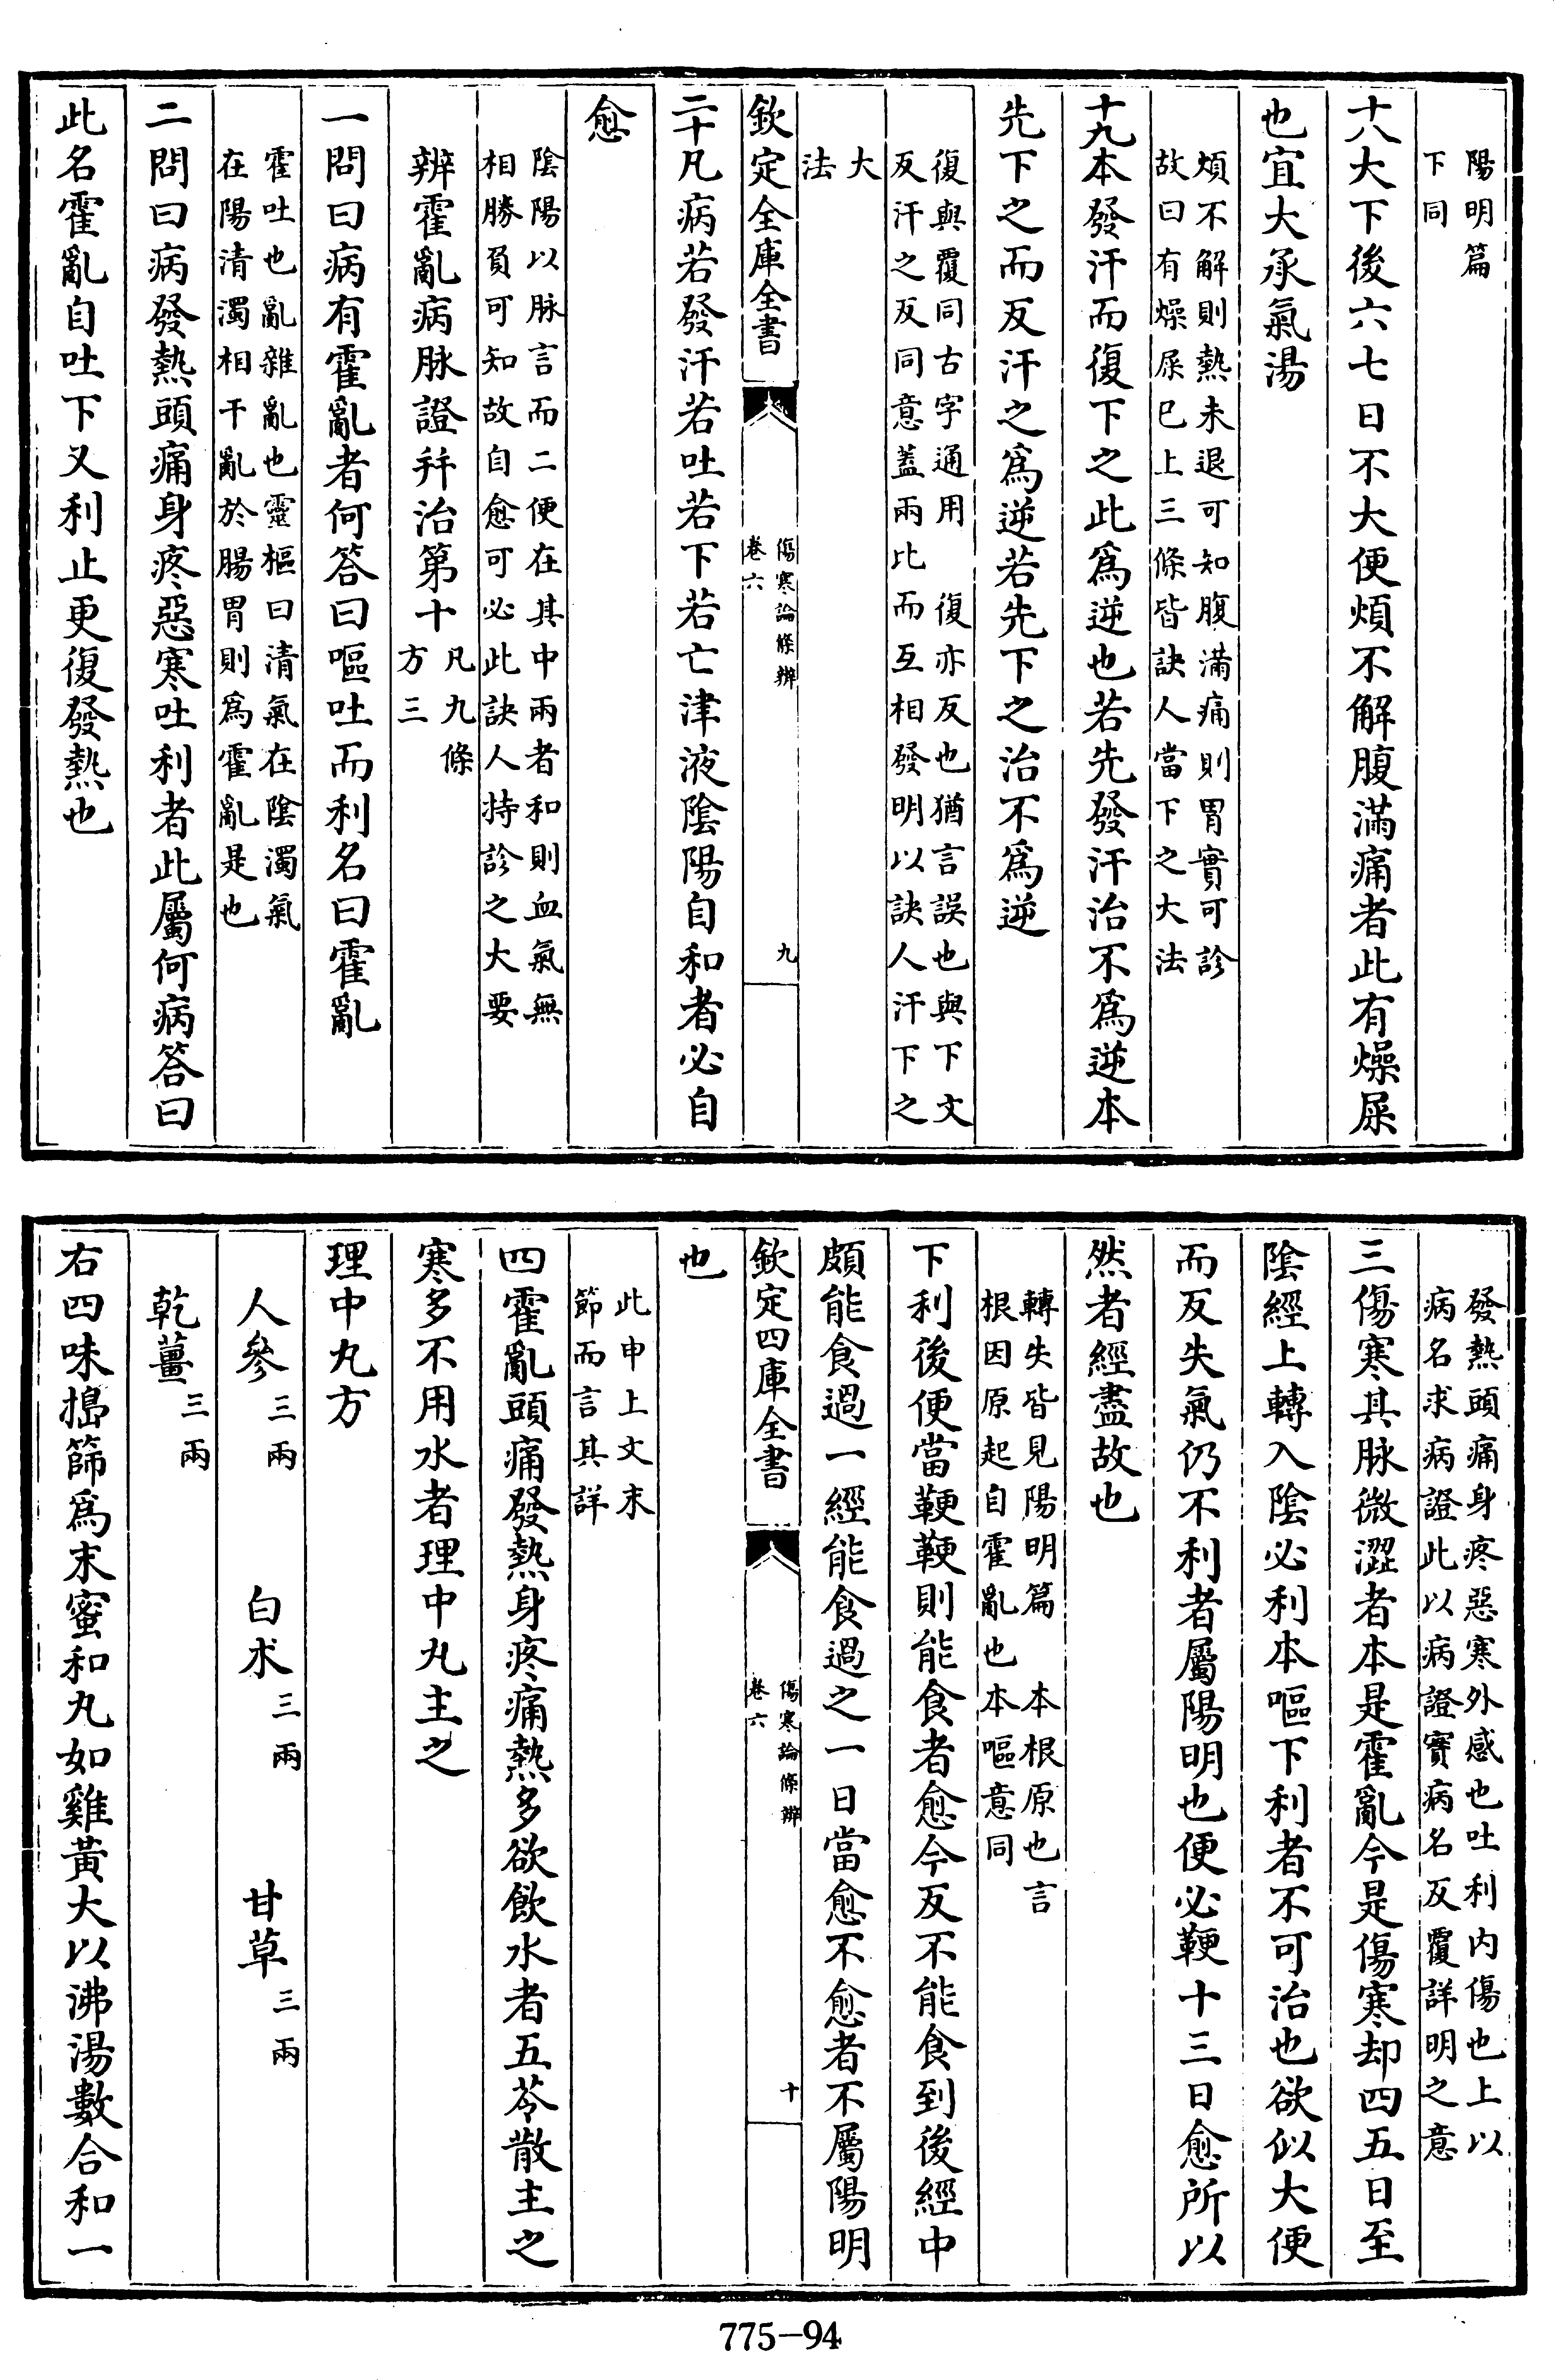 陽明篇
下同
十八大下後六七日不大便煩不解腹滿痛者此有燥屎
也宜大承氣湯
煩不解則熱未退可知腹滿痛則胃實可診
故曰有燥屎已上三條皆訣人當下之大法
十九本發汗而復下之此爲逆也若先發汗治不爲逆本
先下之而反汗之爲逆若先下之治不爲逆
復與覆同古字通用 復亦反也猶言誤也與下文
反汗之反同意蓋兩比而互相發明以訣人汗下之
大
法
欽定全庫全書
傷寒論條辨
卷六
九
二十凡病若發汗若吐若下若亡津液陰陽自和者必自
愈
陰陽以脉言而二便在其中兩者和則血氣無
相勝負可知故自愈可必此訣人持診之大要
辨霍亂病脉證并治第十
凡九條
方三
一問曰病有霍亂者何答曰嘔吐而利名曰霍亂
霍吐也亂雜亂也靈樞曰清氣在陰濁氣
在陽清濁相干亂於腸胃則爲霍亂是也
二問曰病發熱頭痛身疼惡寒吐利者此屬何病答曰
此名霍亂自吐下又利止更復發熱也
發熱頭痛身疼惡寒外感也吐利內傷也上以
病名求病證此以病證實病名反覆詳明之意
三傷寒其脉微澀者本是霍亂今是傷寒却四五日至
陰經上轉入陰必利本嘔下利者不可治也欲似大便
而反失氣仍不利者屬陽明也便必鞕十三日愈所以
然者經盡故也
轉失皆見陽明篇 本根原也言
根因原起自霍亂也本嘔意同
下利後便當鞕鞕則能食者愈今反不能食到後經中
頗能食過一經能食過之一日當愈不愈者不屬陽明
欽定四庫全書
傷寒論條辨
卷六
十
也
此申上文末
節而言其詳
四霍亂頭痛發熱身疼痛熱多欲飲水者五苓散主之
寒多不用水者理中丸主之
理中丸方
人參三兩 白朮三兩 甘草三兩
乾薑三兩
右四味搗篩爲末蜜和丸如雞黃大以沸湯數合和一
775-94